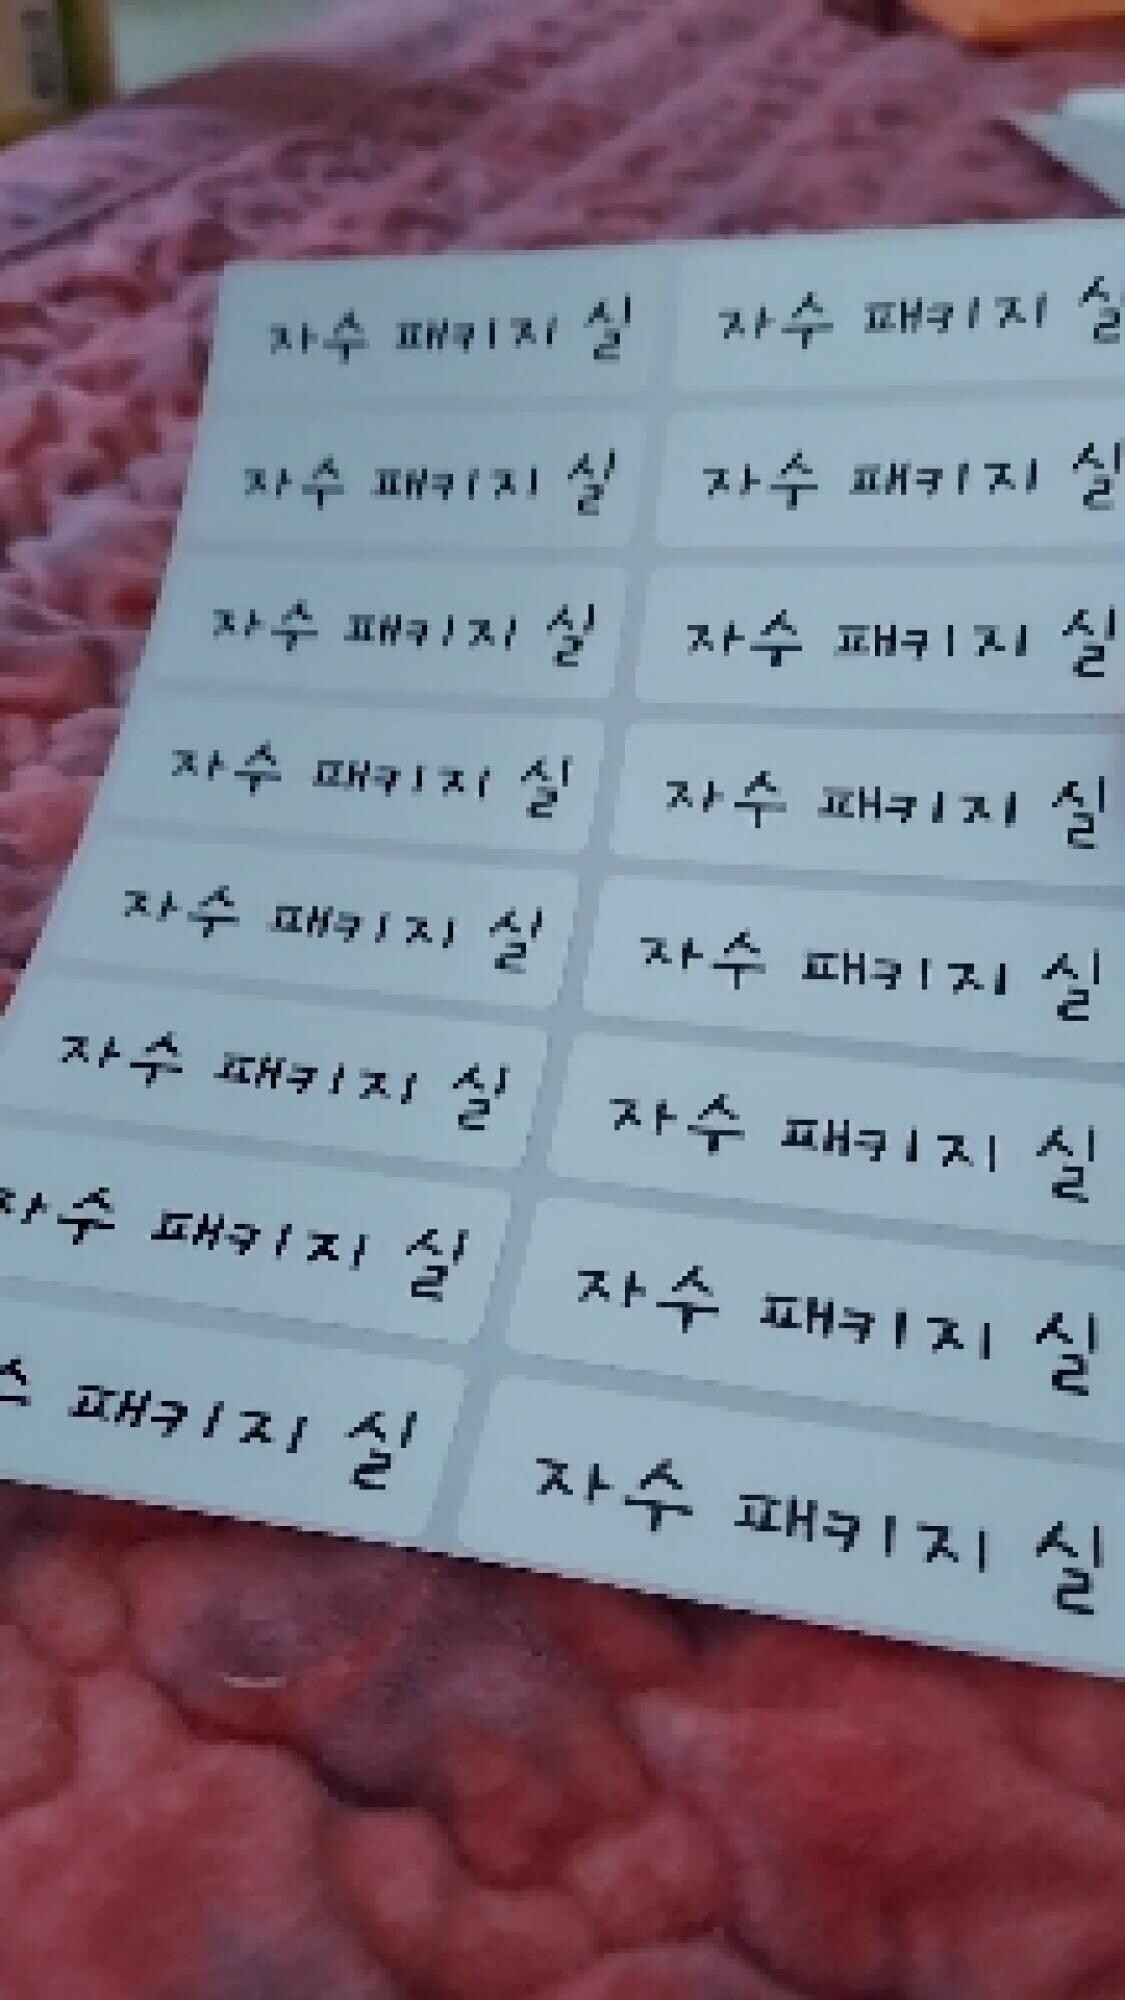 자수 패키지 실 자수 패키지 실
자수 패키지 실 자수 패키지 실
자수 패키지 실 자수 패키지 실
자수 패키지 실 자수 패키지 실
자수 패키지 실 자수 패키지 실
자수 패키지 실 자수 패키지 실
자수 패키지 실 자수 패키지 실
수 패키지 실 자수 패키지 실